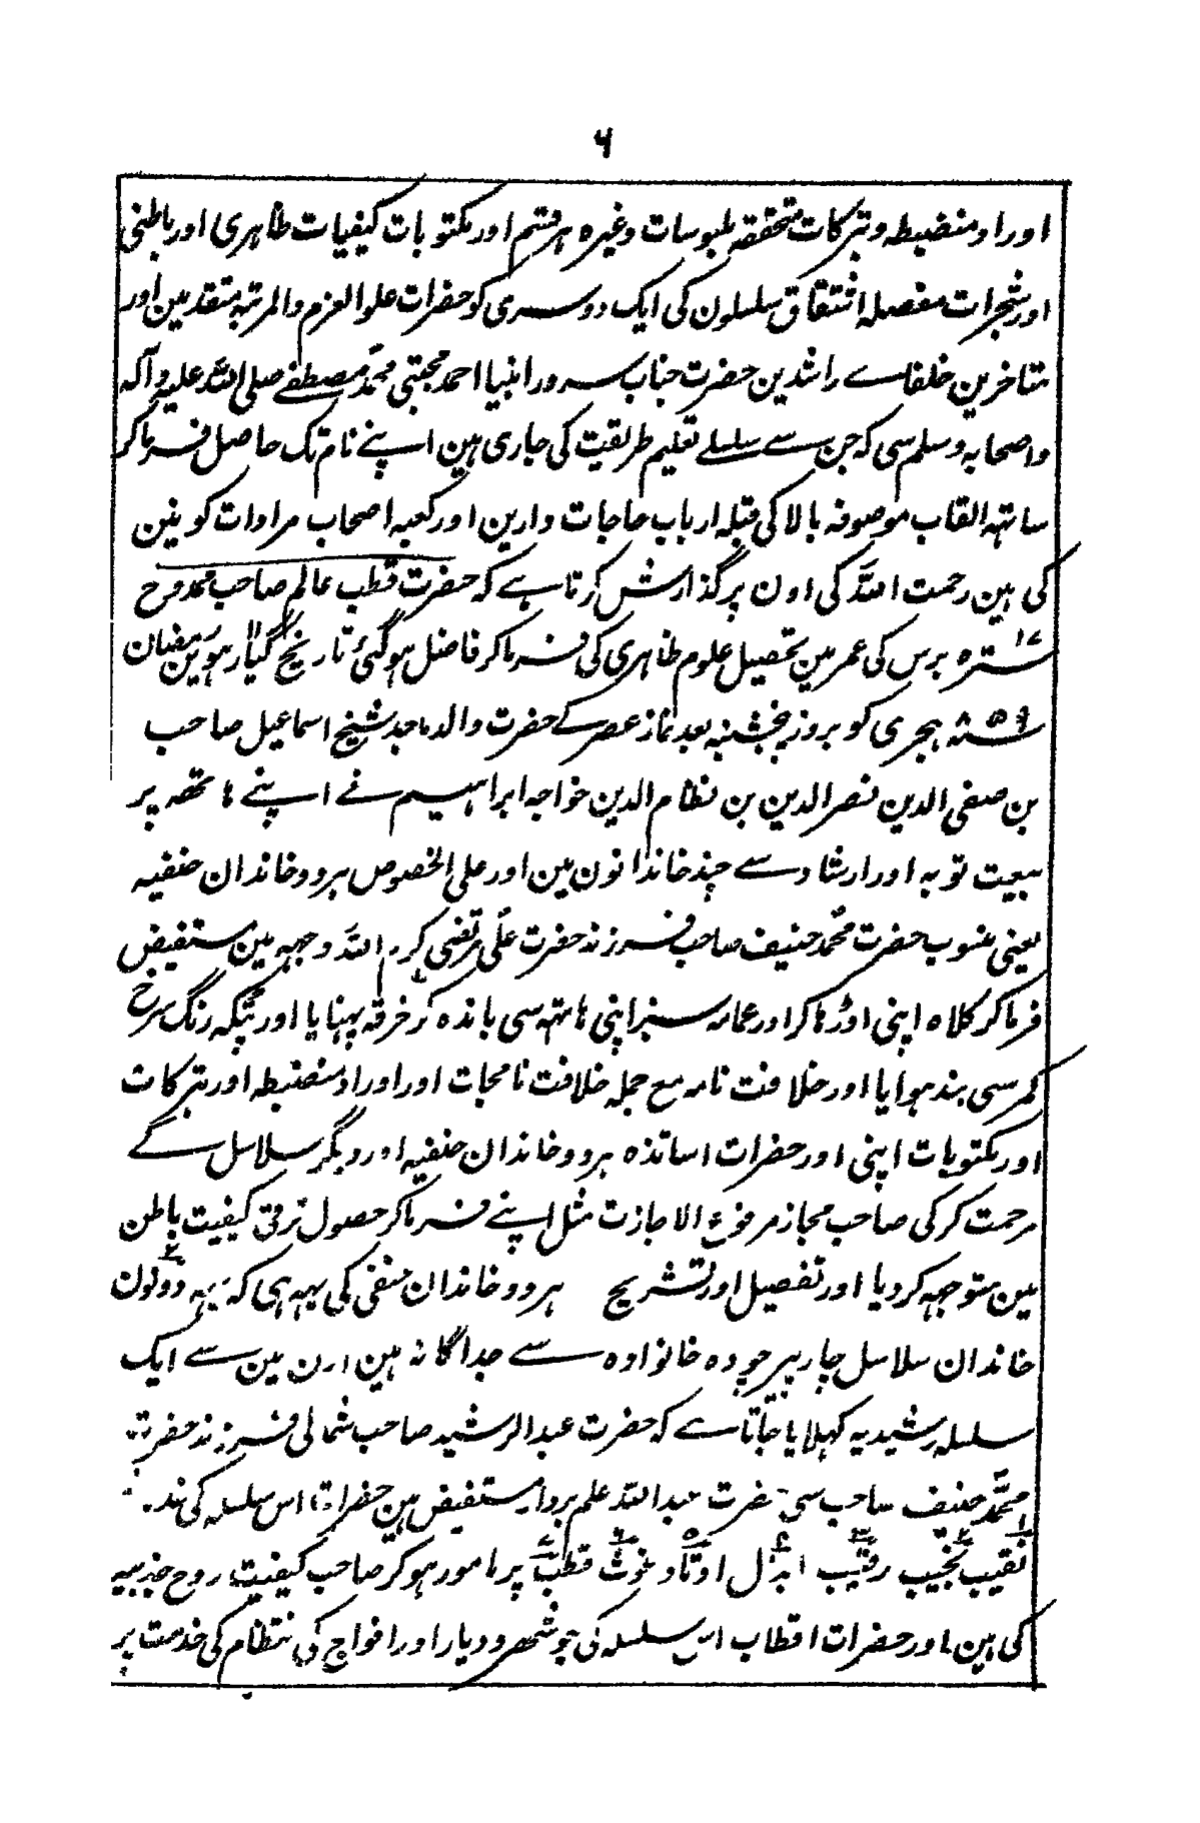 ۶
اوراد منضبطہ و تبرکات متحققہ ملبوسات وغیرہ ہر قسم اور مکتوبات کیفیات ظاہری اور باطنی
اور شجرات مفصلہ اشتقاق سلسلون کی ایک دوسری کو حضرات علو العزم والمرتبہ متقدمین اور
متاخرین خلفاے راشدین حضرت جناب سرور انبیا احمد مجتبی محمد مصطفے صلی اللہ علیہ وآلہ
واصحابہ وسلم سی کہ جن سے سلسلے تعلیم طریقیت کی جاری ہین اپنے نام تک حاصل فرماکر
ساتہہ القاب موصوفہ بالا کی قبلہ ارباب حاجات دارین اور کعبہ اصحاب مرادات کونین
کی ہین رحمت اللہ کی اون پر گذارش کرتا ہے کہ حضرت قطب عالم صاحب ممدوح
۱۷ سترہ برس کی عمر مین تحصیل علوم ظاہری کی فرماکر فاضل ہوگئی تاریخ گیارہوین رمضان
۸۵۹ سنہ ہجری کو بروز پنجشنبہ بعد نماز عصر کے حضرت والد ماجد شیخ اسماعیل صاحب
بن صفی الدین نصر الدین بن نظام الدین خواجہ ابراہیم نے اپنے ہاتھہ پر
بیعت توبہ اور ارشاد سے چند خاندانون مین اور علی الخصوص ہردو خاندان حنفیہ
یعنی منسوب حضرت محمد حنیف صاحب فرزند حضرت علی مرتضی کرم اللہ وجہہ مین مستفیض
فرماکر کلاہ اپنی اوڑہاکر اور عمامہ سبز اپنی ہاتہہ سی باندہ کر خرقہ پہنایا اور پٹکہ رنگ سرخ
کمر سی بندہوایا اور خلافت نامہ مع جملہ خلافت نامجات اور اوراد منضبطہ اور تبرکات
اور مکتوبات اپنی اور حضرات اساتذہ ہردو خاندان حنفیہ اور دیگر سلاسل کے
مرحمت کرکی صاحب مجاز مرفوع الاجازت مثل اپنے فرماکر حصول ترقی کیفیت باطن
مین متوجہہ کردیا اور تفصیل اور تشریح ہردو خاندان حنفی کی یہہ ہی کہ یہہ دونون
خاندان سلاسل چار پیر چودہ خانوادہ سے جداگانہ ہین ارن مین سے ایک
سلسلہ رشیدیہ کہلایا جاتا ہے کہ حضرت عبدالرشید صاحب شمالی فرزند حضرت
محمد حنیف صاحب سی حضرت عبداللہ علم بردار مستفیض ہین حضرات اس سلسلہ کی
نقیب نجیب رقیب ابدال اوتاد غوث قطب پر مامور ہوکر صاحب کیفیت روح جذبیہ
کی ہین اور حضرات اقطاب اس سلسلہ کی جو شہر و دیار اور افواج کی نتظام کی خدمت پر